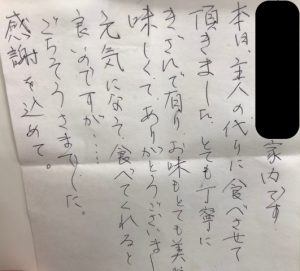 家内です
本日は、主人の代りに食べさせて
頂きました。とても丁寧に
きざんで有り、お味もとても美
味しくて ありがとうございまし
元気になって 食べてくれると
良いのですが、‥‥
ごちそうさまでした。
感謝を込めて。